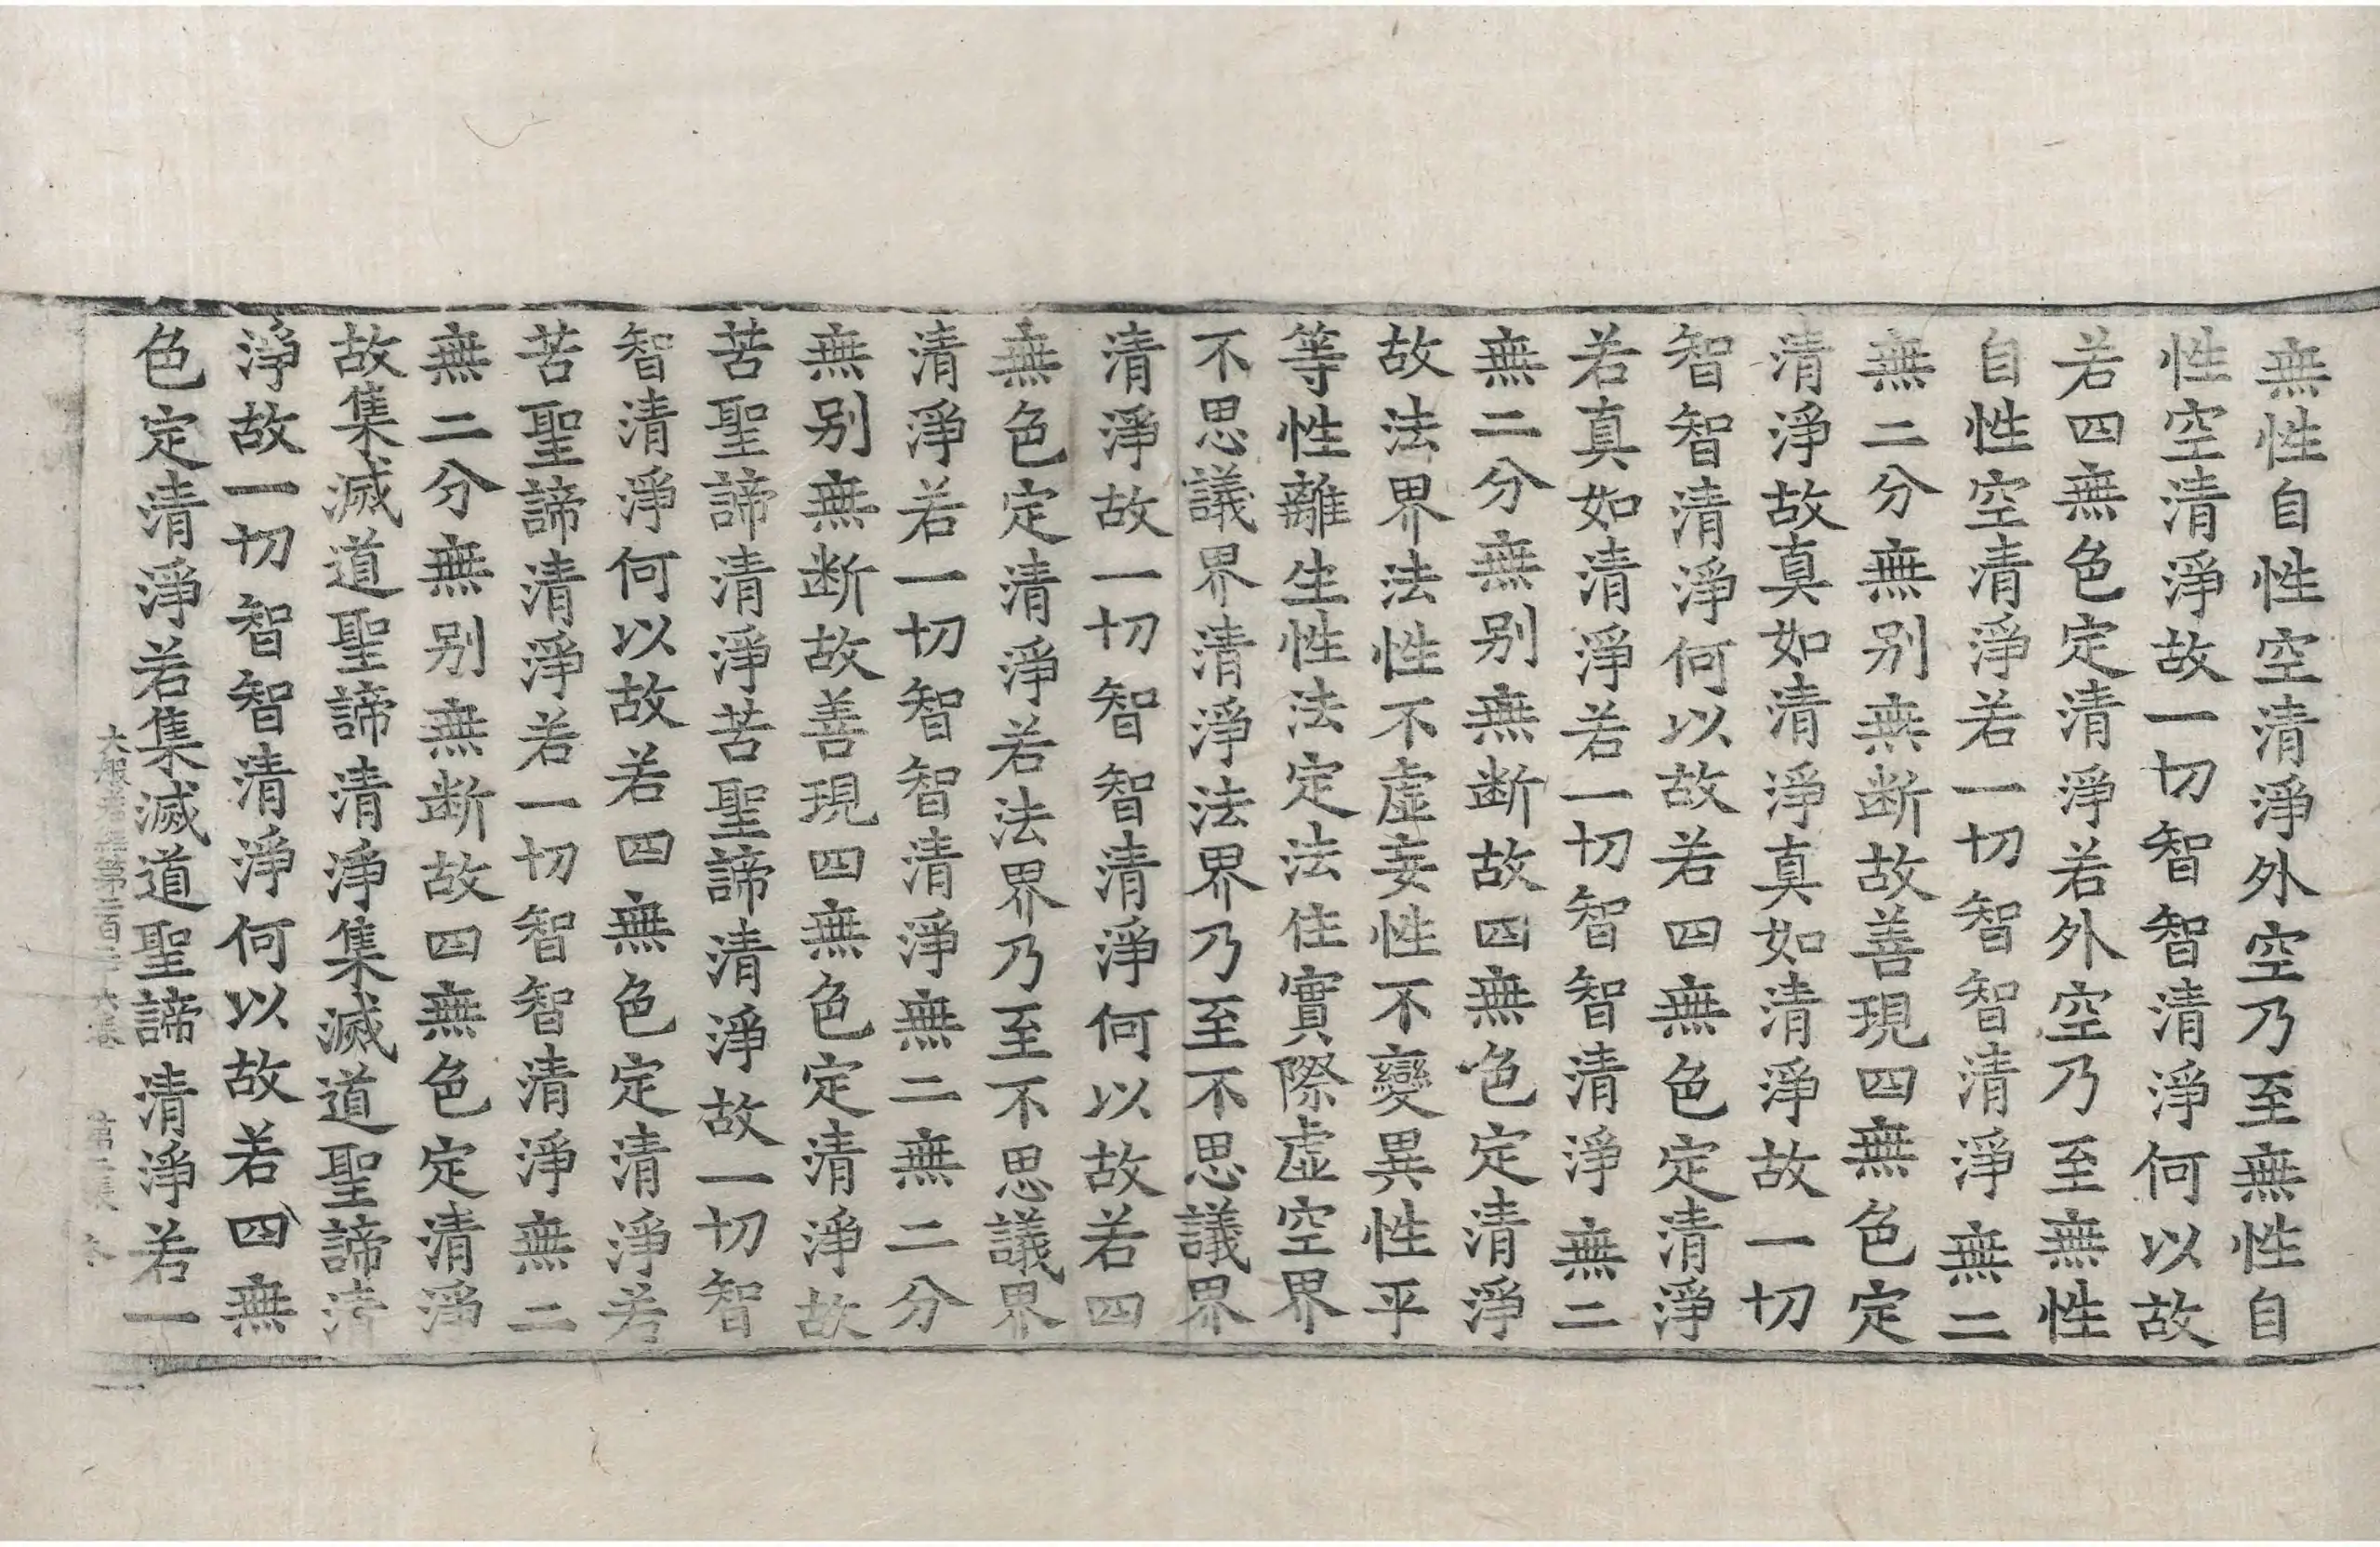 無性自性空清淨外空乃至無性自
性空清淨故一切智智清淨何以故
若四無色定清淨若外空乃至無性
自性空清淨若一切智智清淨無二
無二分無别無断故善現四無色定
清淨故真如清淨真如清淨故一切
智智清淨何以故若四無色定清淨
若真如清淨若一切智智清淨無二
無二分無别無断故四無色定清淨
故法界法性不虛妄性不變異性平
等性離生性法定法住實際虛空界
不思議界清淨法界乃至不思議界
清淨故一切智智清淨何以故若四
無色定清淨若法界乃至不思議界
清淨若一切智智清淨無二無二分
無别無断故善現四無色定清淨故
苦聖諦清淨苦聖諦清淨故一切智
智清淨何以故若四無色定清淨若
苦聖諦清淨若一切智智清淨無二
無二分無别無断故四無色定清淨
故集滅道聖諦清淨集滅道聖諦清
淨故一切智智清淨何以故若四無
色定清淨若集滅道聖諦清淨若一
大般若第二百 六